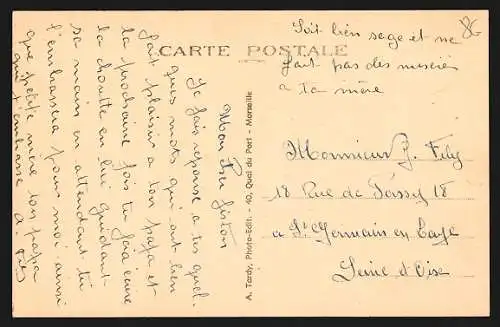 Soit bien sage et ne
fait pas des misères
a ta mère
CARTE POSTALE
Mon
Je fais reponse a tes quel-
ques mots qui ont bien
fait plaisir a ton papa et
la prochaine fois tu fera écrire
la chouette en lui guidant
sa main en attendant tu
l'embrassera pour moi aussi
que petite mère ton papa
qui t'embrasse
A. Tardy, Photo-Edit. - 40, Quai du Port - Marseille
Monsieur J. Fily
18 Rue de Poissy 18
a St Germain en Laye
Seine et Oise